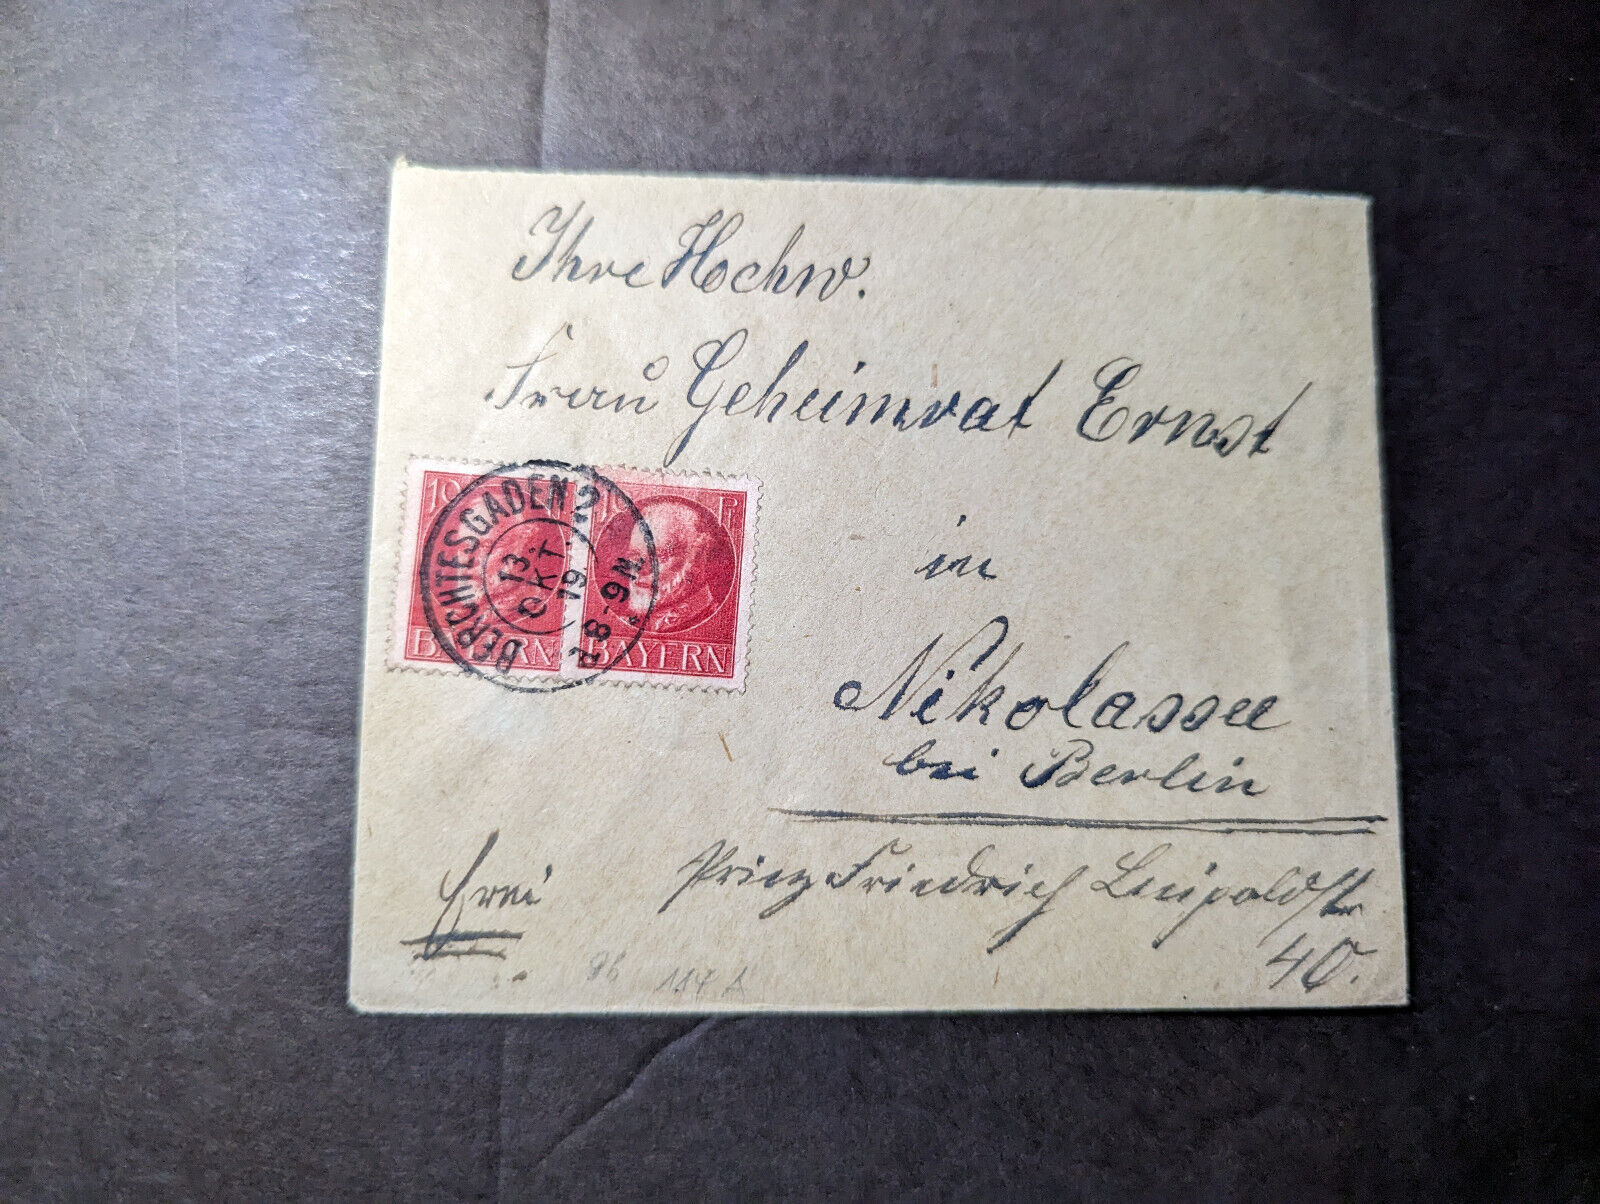 Ihre Hochw.
Frau Geheimrat Ernst
in
Nikolassee
bei Berlin
Prinz Friedrich Leupoldstr
40.
frei
BERCHTESGADEN 2
13.
OKT.
19
N. 8-9 N.
10
BAYERN
10 Pf
BAYERN
184 A